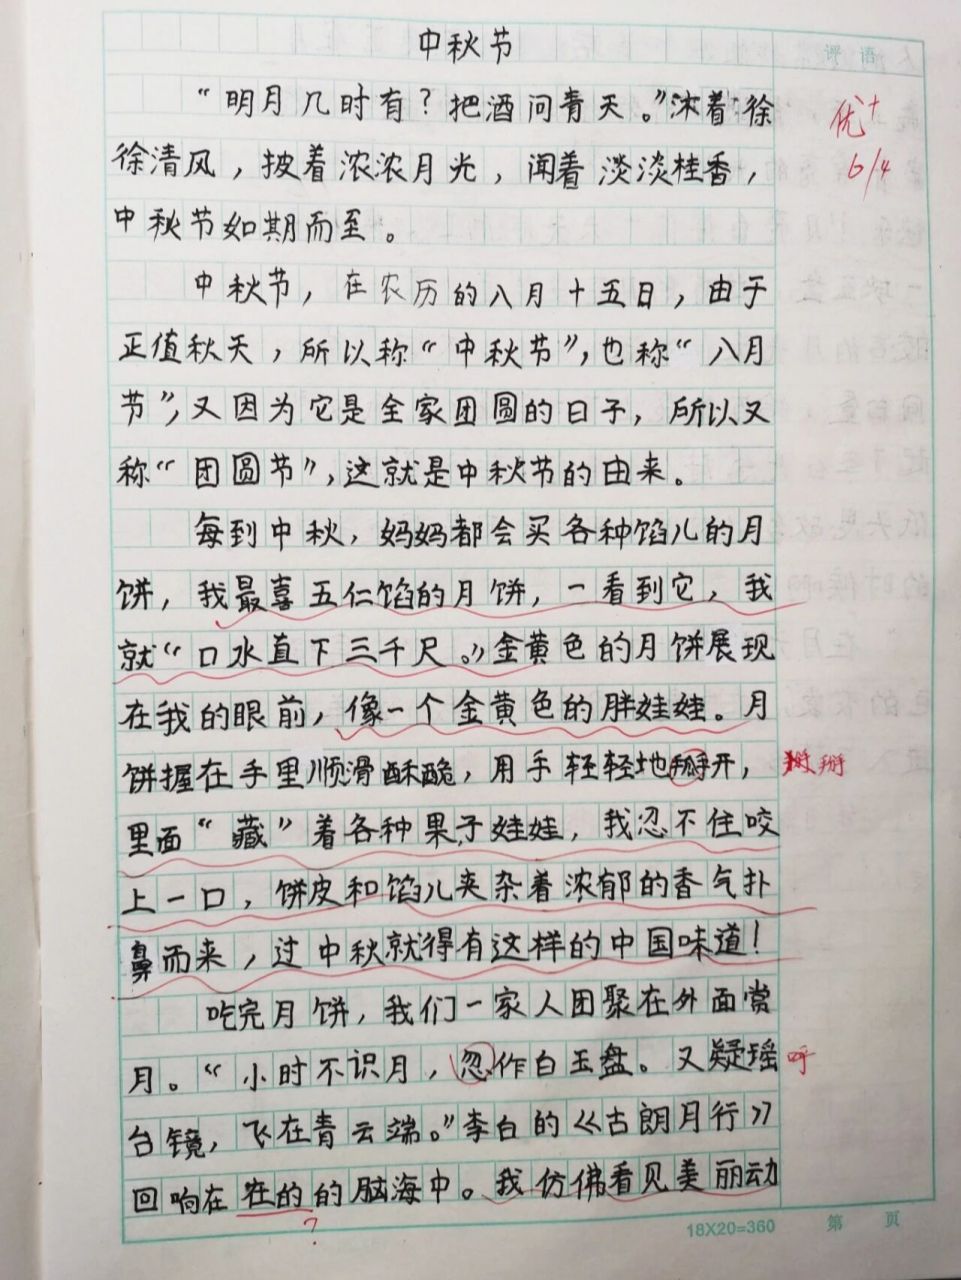 中秋节
评语
“明月几时有？把酒问青天。”沐着徐
优+
徐清风，披着浓浓月光，闻着淡淡桂香，
6/4
中秋节如期而至。
中秋节，在农历的八月十五日，由于
正值秋天，所以称“中秋节”，也称“八月
节”，又因为它是全家团圆的日子，所以又
称“团圆节”，这就是中秋节的由来。
每到中秋，妈妈都会买各种馅儿的月
饼，我最喜五仁馅的月饼，一看到它，我
就“口水直下三千尺。”金黄色的月饼展现
在我的眼前，像一个金黄色的胖娃娃。月
饼握在手里顺滑酥脆，用手轻轻地掰开，
掰掰
里面“藏”着各种果子娃娃，我忍不住咬
上一口，饼皮和馅儿夹杂着浓郁的香气扑
鼻而来，过中秋就得有这样的中国味道！
吃完月饼，我们一家人团聚在外面赏
月。“小时不识月，忽作白玉盘。又疑瑶
呼
台镜，飞在青云端。”李白的《古朗月行》
回响在在的的脑海中。我仿佛看见美丽动
?
18X20=360 第 页